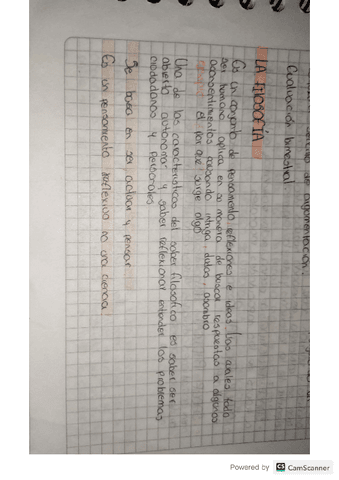 de argumentación.
Evaluación bimestral
LA FILOSOFÍA
Es un conjunto de pensamiento, reflexiones e ideas, las cuales todo
ser humano aplica en su manera de buscar respuestas a algunos
acontecimientos causando intriga, dudas, asombro
el por que surge algo
Una de las características del saber filosofico es saber ser
abierto autonoma y saber reflexionar entender los problemas
ciudadanos y personales
Se basa en ser activar y pensar
Es un pensamiento reflexivo no una ciencia
Powered by CS CamScanner